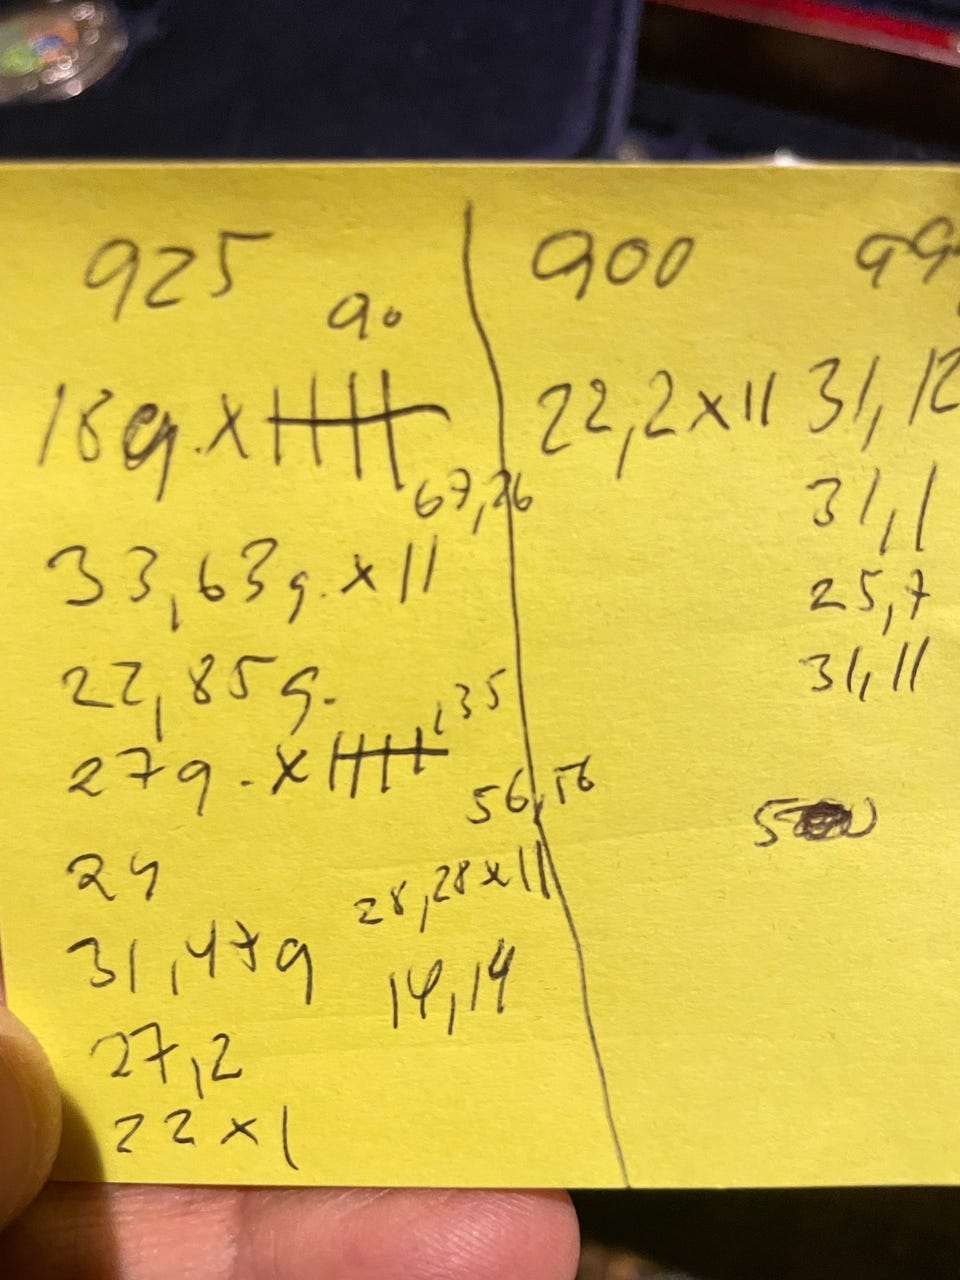 925
90
18g. x 卌
67,26
33,63g. x 11
22,85g.
135
27g. x 卌
56,56
24
28,28 x 11
31,47g
14,14
27,2
22 x 1
900
22,2 x 11
99
31,12
31,1
25,7
31,11